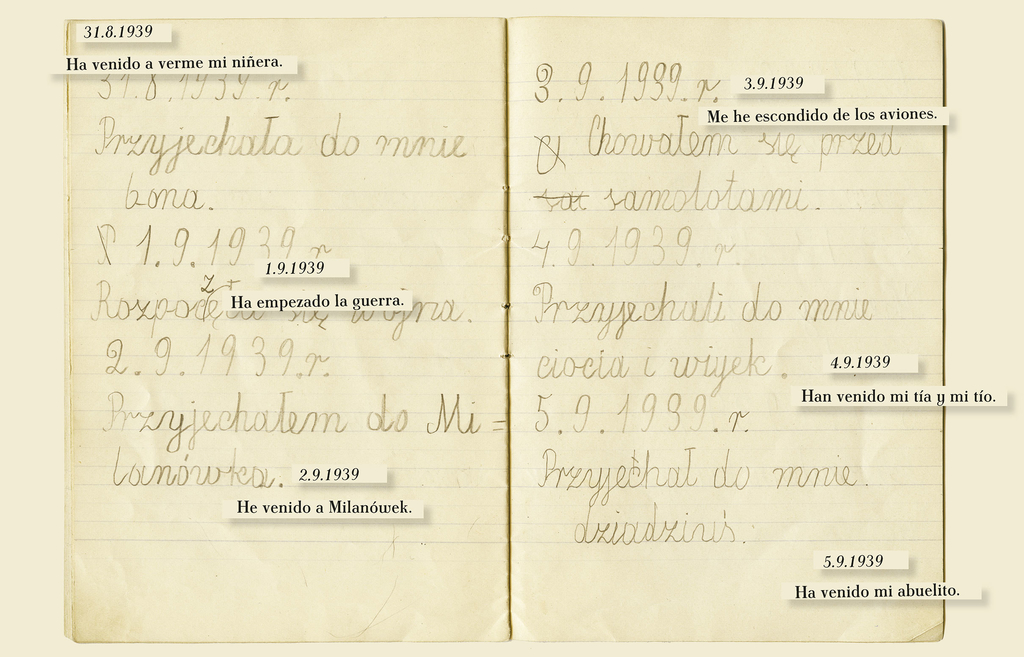 31.8.1939
Ha venido a verme mi niñera.
31.8.1939.r.
Przyjechała do mnie
bona.
1.9.1939.r
1.9.1939
Rozpoczęła się wojna.
Ha empezado la guerra.
2.9.1939.r.
Przyjechałem do Mi=
lanówka.
2.9.1939
He venido a Milanówek.
3.9.1939.r.
3.9.1939
Me he escondido de los aviones.
Chowałem się przed
samolotami.
4.9.1939.r.
Przyjechali do mnie
ciocia i wujek.
4.9.1939
Han venido mi tía y mi tío.
5.9.1939.r.
Przyjechał do mnie
dziadziuś.
5.9.1939
Ha venido mi abuelito.